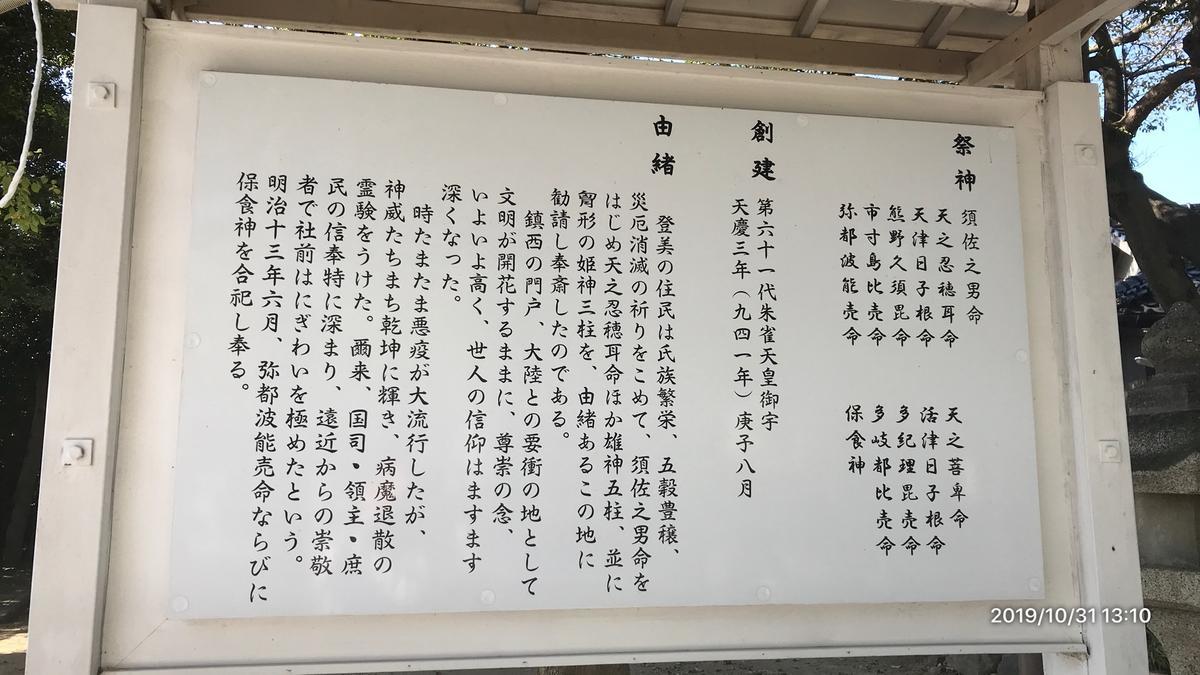 祭神
須佐之男命
天之忍穂耳命 天之菩卑命
天津日子根命 活津日子根命
熊野久須毘命 多紀理毘売命
市寸島比売命 多岐都比売命
弥都波能売命 保食神
創建
第六十一代朱雀天皇御宇
天慶三年(九四一年)庚子八月
由緒
登美の住民は氏族繁栄、五穀豊穣、
災厄消滅の祈りをこめて、須佐之男命を
はじめ天之忍穂耳命ほか雄神五柱、並に
胷形の姫神三柱を、由緒あるこの地に
勧請し奉斎したのである。
鎮西の門戸、大陸との要衝の地として
文明が開花するままに、尊崇の念、
いよいよ高く、世人の信仰はますます
深くなった。
時たまたま悪疫が大流行したが、
神威たちまち乾坤に輝き、病魔退散の
霊験をうけた。爾来、国司・領主・庶
民の信奉特に深まり、遠近からの崇敬
者で社前はにぎわいを極めたという。
明治十三年六月、弥都波能売命ならびに
保食神を合祀し奉る。
2019/10/31 13:10